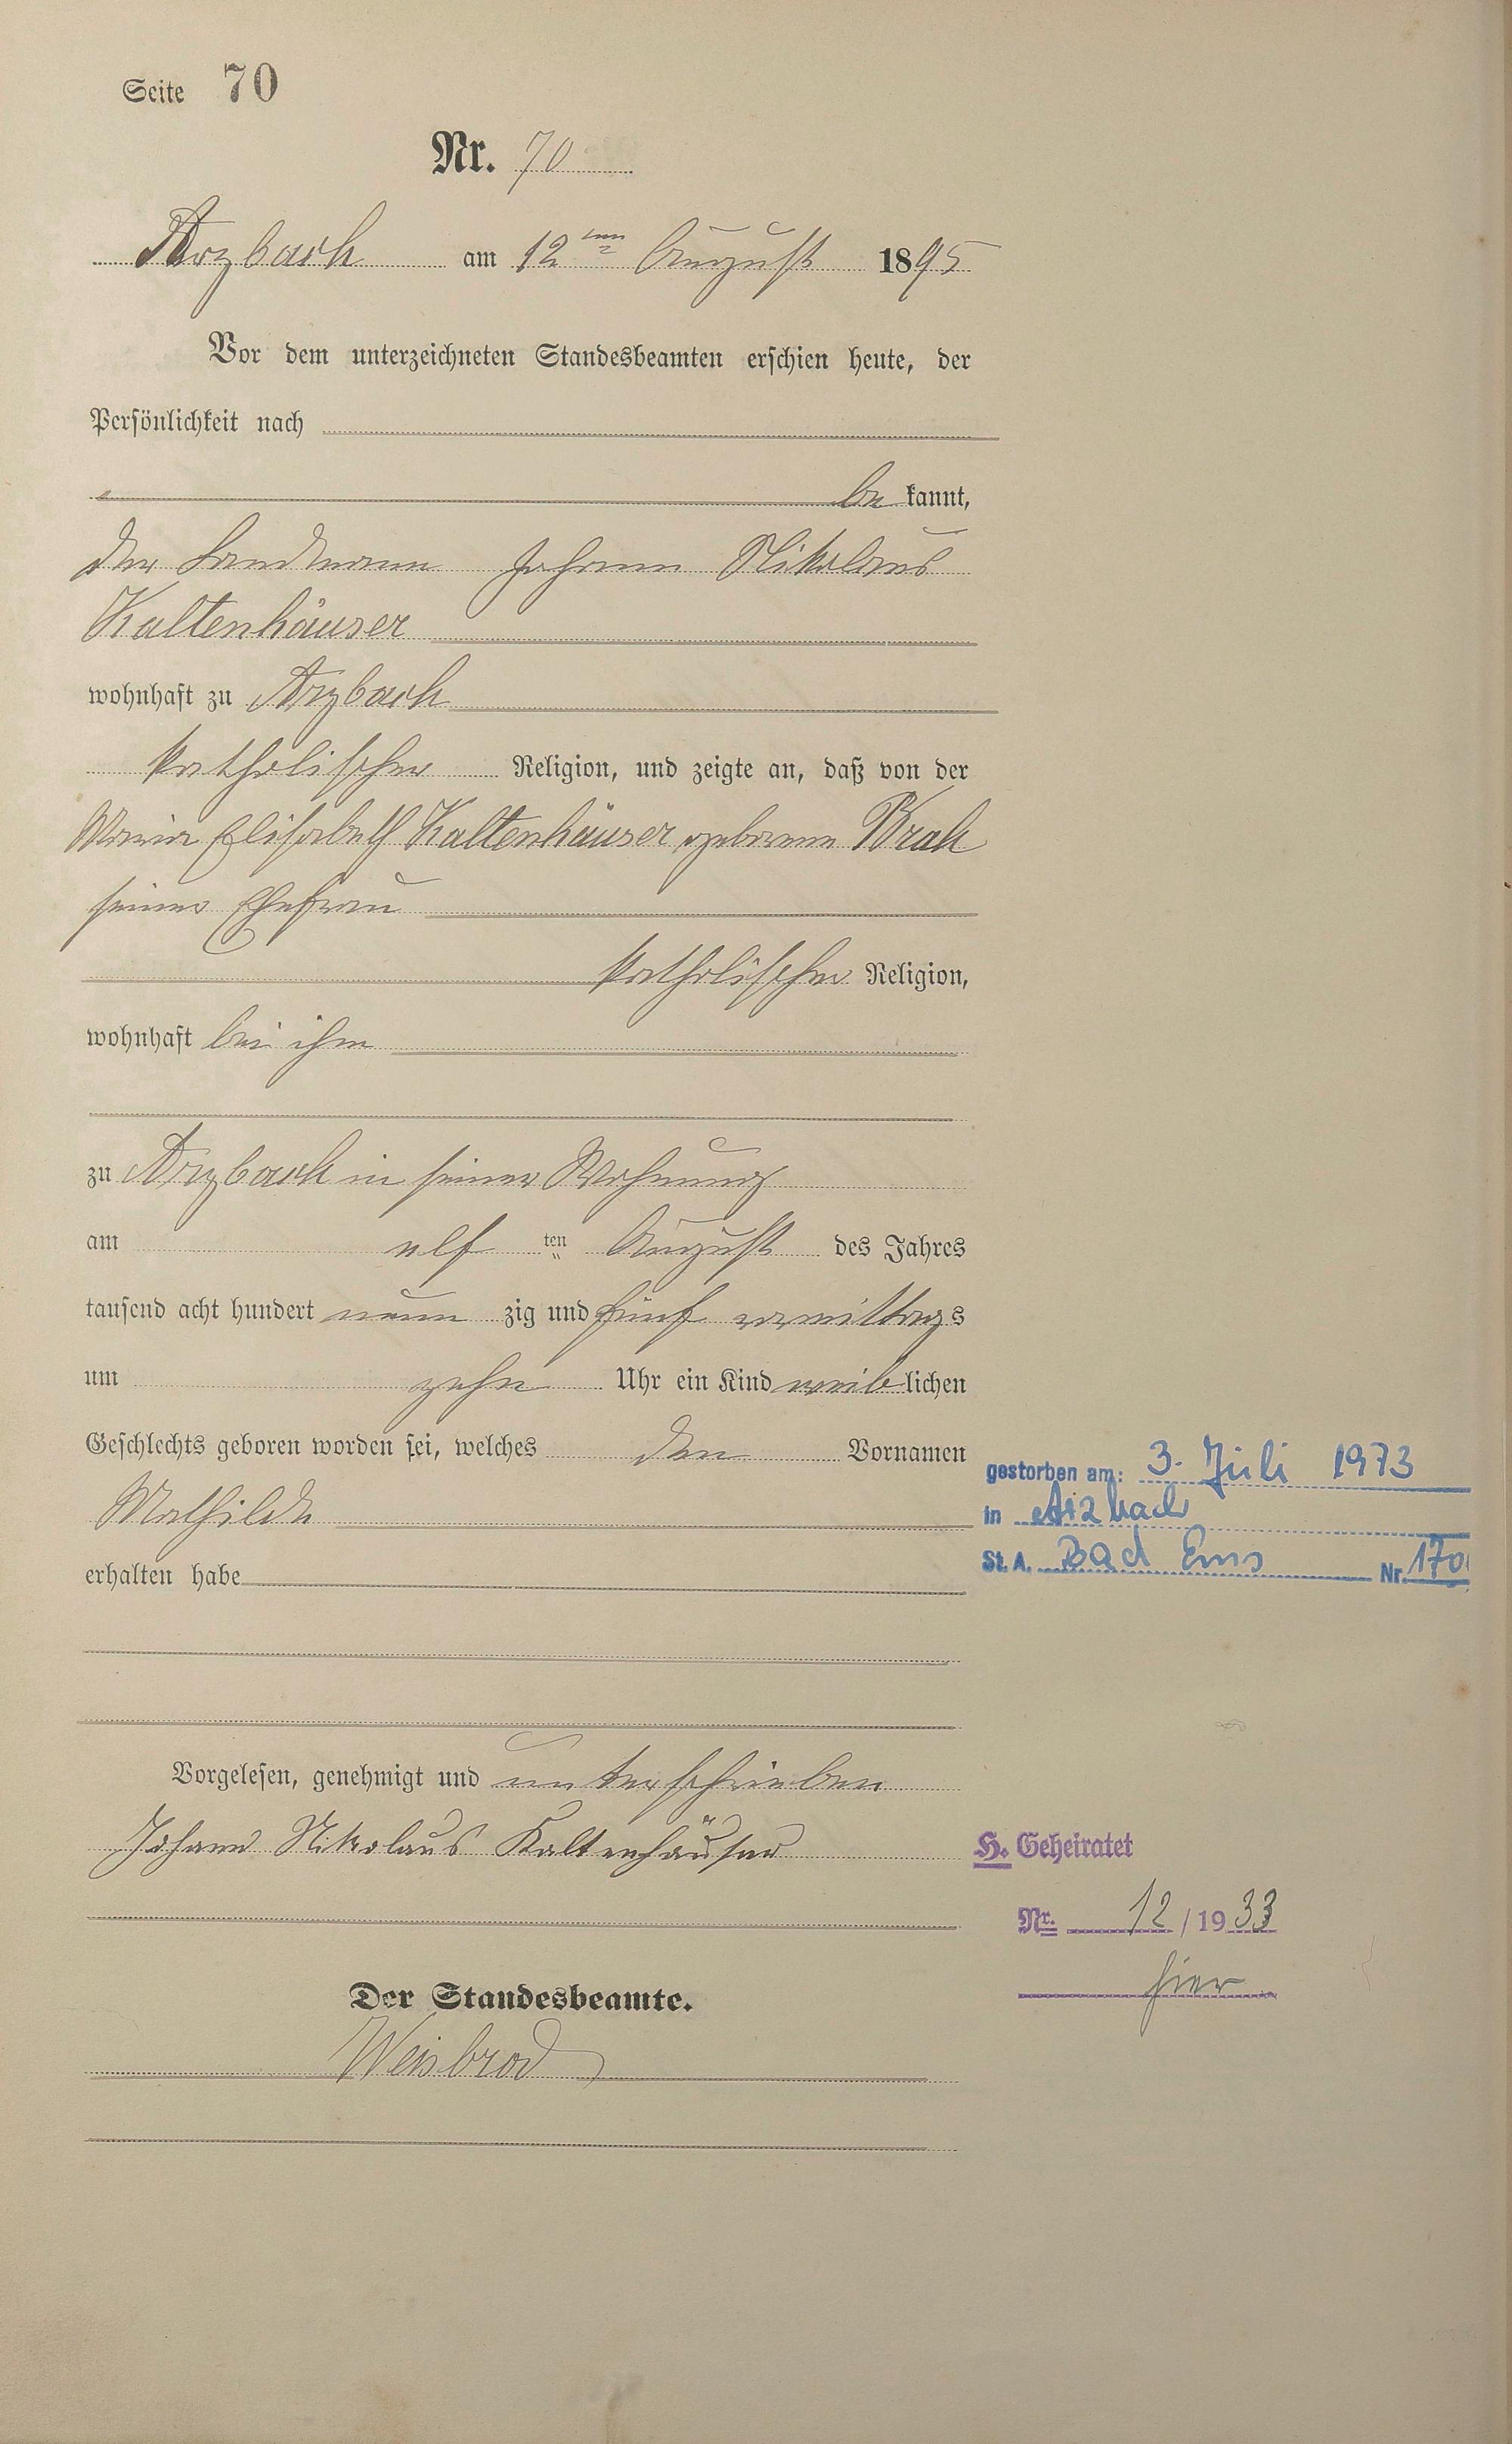 Seite 70
Nr. 70
Arzbach am 12ten August 1895
Vor dem unterzeichneten Standesbeamten erschien heute, der
Persönlichkeit nach
be kannt,
der Landmann Johann Nikolaus
Kaltenhäuser
wohnhaft zu Arzbach
katholischer Religion, und zeigte an, daß von der
Maria Elisabeth Kaltenhäuser, geborene
seiner Ehefrau
katholischer Religion,
wohnhaft bei ihm
zu Arzbach in seiner Wohnung
am elf ten August des Jahres
tausend acht hundert neun zig und fünf vormittags
um zehn Uhr ein Kind weib lichen
Geschlechts geboren worden sei, welches den Vornamen
Mathilde
erhalten habe
gestorben am: 3. Juli 1973
in Arzbach
St. A. Bad Ems Nr. 170
Vorgelesen, genehmigt und unterschrieben
Johann Nikolaus Kaltenhäuser
H. Geheiratet
Nr. 12 / 19 33
hier
Der Standesbeamte.
Weisbrod